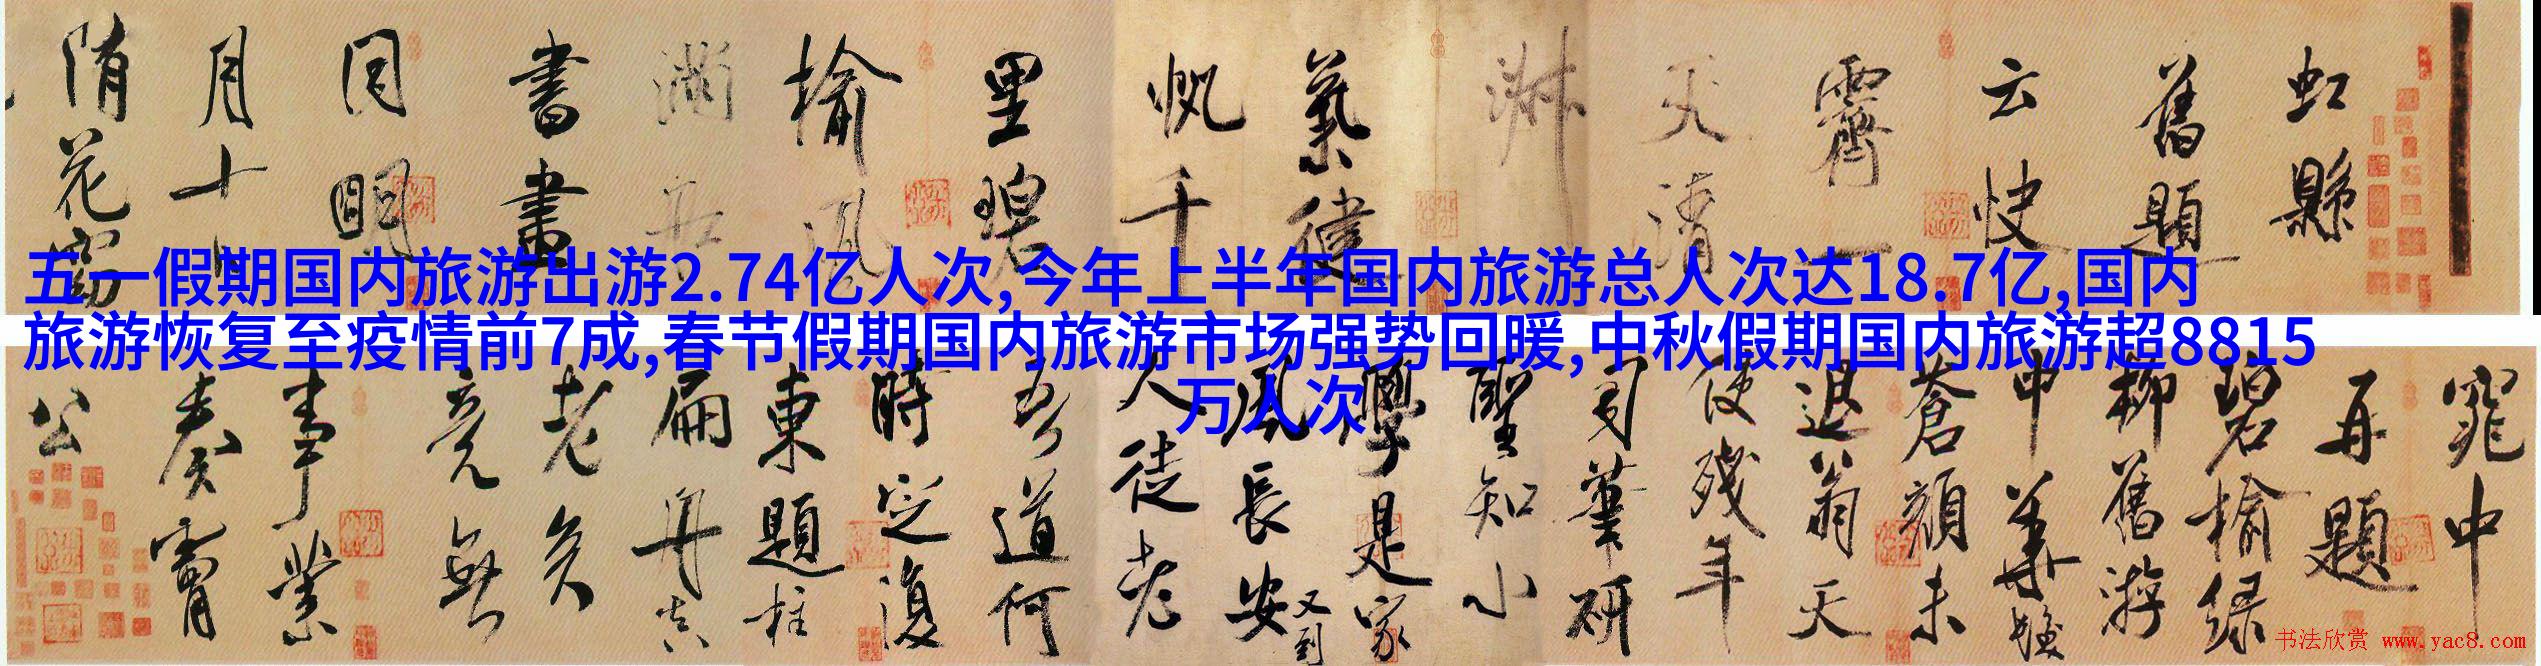 五一假期国内旅游出游2.74亿人次,今年上半年国内旅游总人次达18.7亿,国内
旅游恢复至疫情前7成,春节假期国内旅游市场强势回暖,中秋假期国内旅游超8815
万人次
虹縣
舊題
云快
霽一
天清
淑
氣健
帆千
里碧
榆風
滿船
書畫
同明
月十日
隋花窈
窕中
再題
碧榆綠
柳舊游
中華髮
蒼顏未
退翁天
使殘年
司筆研
聖知小
學是家
風長安又到
人徒老
吾道何
時定復
東題柱
扁舟真
老矣
竟無
事業
奏膚
公
书法欣赏 www.yac8.com